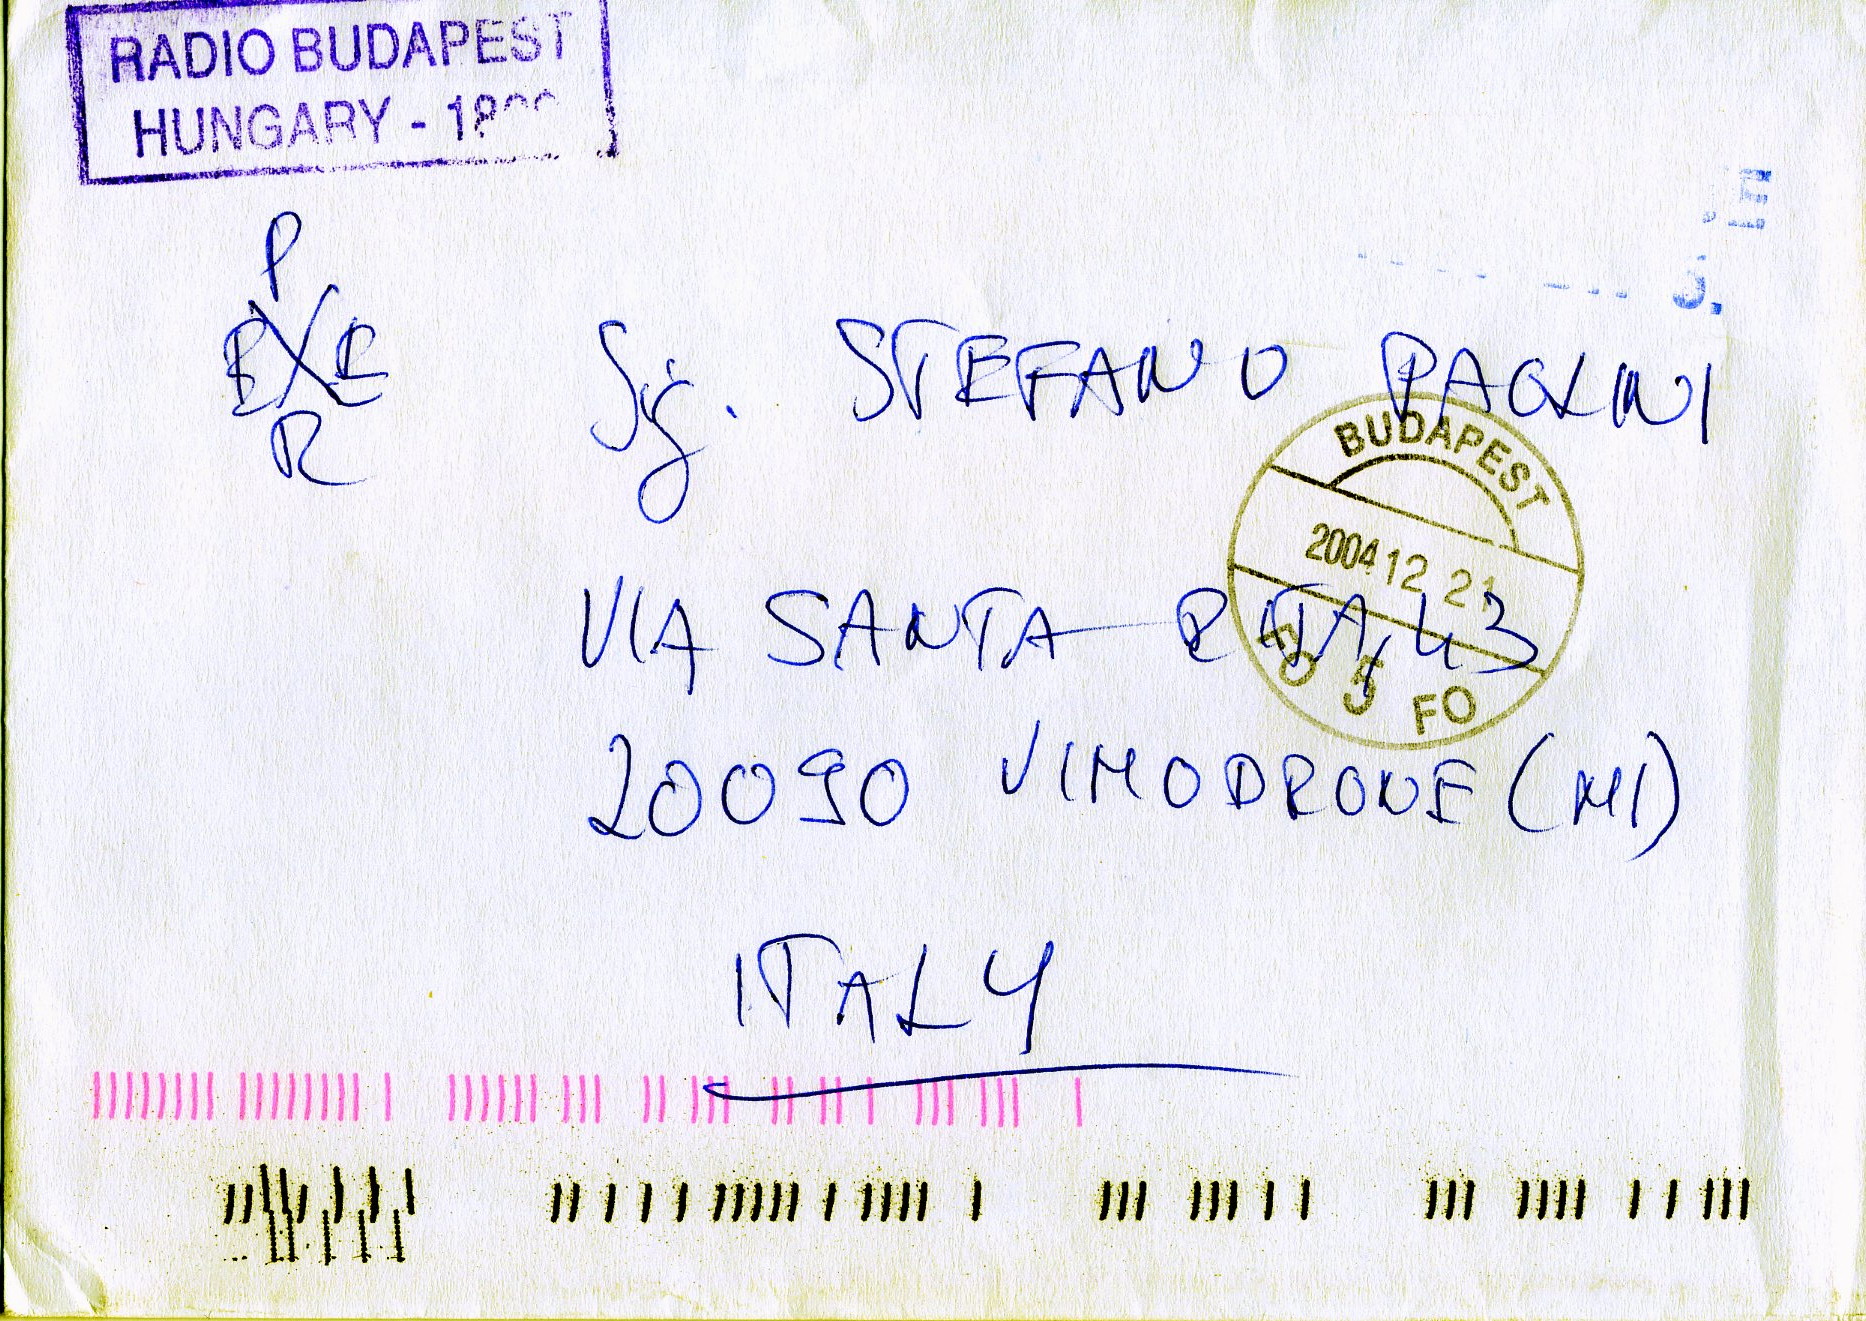 RADIO BUDAPEST
HUNGARY -
P
R
Sg. STEFANO PAOLINI
BUDAPEST
2004 12 21
VIA SANTA RITA, 43
5 FO
20090 VIMODRONE (MI)
ITALY